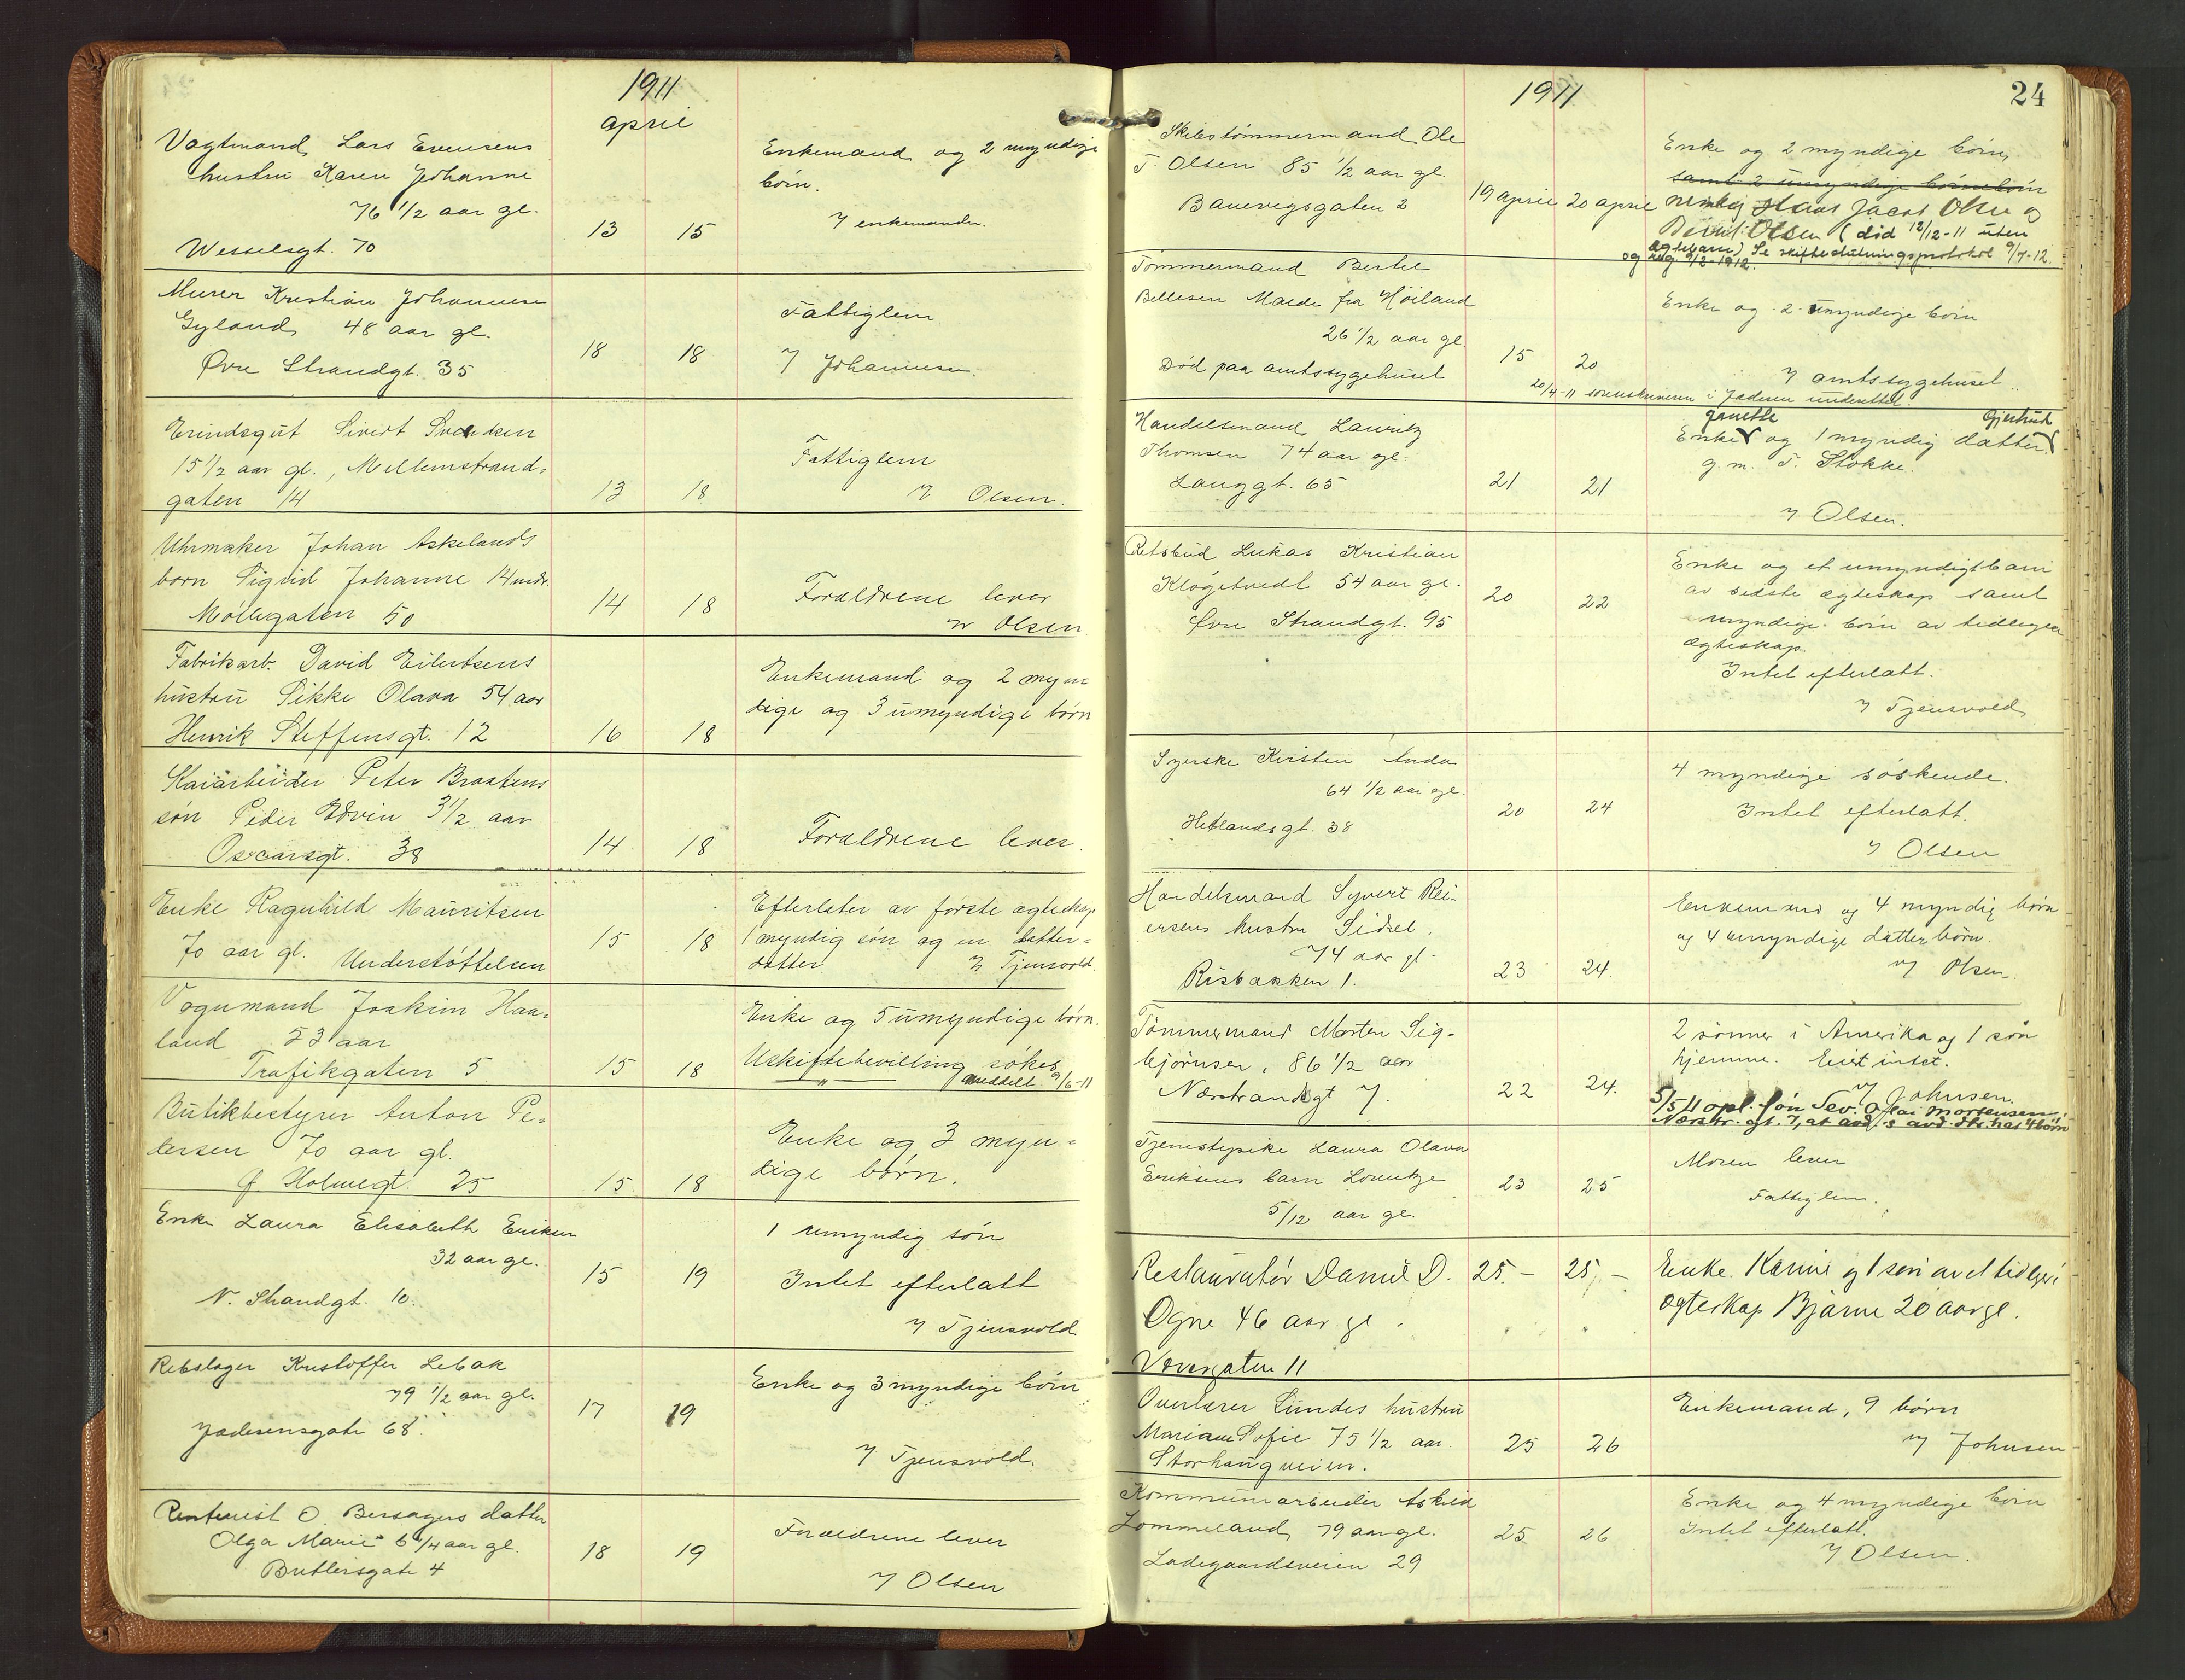 1911
april
Vagtmand Lars Evensens
hustru Karen Johanne
76 1/2 aar gl.
Wesselsgt. 70
13 15
Enkemand og 2 myndige
börn.
v/ enkemanden.
Murer Kristian Johannesen
Gyland 48 aar gl.
Øvre Strandgt. 35
18 18
Fattiglem
v/ Johannesen.
Erindsgut Sivert
15 1/2 aar gl., Mellemstrand=
gaten 14
13 18
Fattiglem
v/ Olsen.
Uhrmaker Johan Askelands
barn Sigrid Johanne 14 mdr.
Möllegaten 50
14 18
Forældrene lever
v/ Olsen
Fabrikarb. David Eilertsens
hustru Sikke Olava 54 aar
Henrik Steffensgt. 12
16 18
Enkemand og 2 myn=
dige og 3 umyndige börn
Kaiarbeider Peter Braatens
sön Peder Edvin 3 1/2 aar
Oscarsgt. 38
14 18
Forældrene lever.
Enke Ragnhild Mauritsen
70 aar gl. Understöttelsen
15 18
Efterlater av forste ægteskap
1 myndig sön og en datter=
datter. v/ Tjensvold.
Vognmand Joakim Haa=
land 53 aar
Trafikgaten 5
15 18
Enke og 5 umyndige börn.
Uskiftebevilling sökes
—„— meddelt 9/6-11
Butikbestyrer Anton Pe=
tersen 70 aar gl.
Ø. Holmegt. 25
15 18
Enke og 3 myn=
dige börn.
Enke Laura Elisabeth Eriksen
32 aar gl.
N. Strandgt. 10.
15 19
1 umyndig sön
Intet efterlatt
v/ Tjensvold.
Rebslager Kristoffer Lebak
79 1/2 aar gl.
Jæderensgate 68.
17 19
Enke og 3 myndige börn
v/ Tjensvold.
Rentenist O. Bersagers datter
Olga Marie 6 1/4 aar gl.
Butlersgate 4
18 19
Forældrene lever
v/ Olsen
1911
24
Skibstömmermand Ole
T. Olsen 85 1/2 aar gl.
Banevigsgaten 2
19 april 20 april
Enke og 2 myndige börn,
samt 2 umyndige börnebörn
nemlig Hans Jacob Olsen og
Olsen (död 12/12-11 uten
ægtebarn) Se skifteslutningsprotokol 9/7-12.
og 9/2-1912.
Tömmermand Bertel
Bellesen Malde fra Höiland
26 1/2 aar gl.
Död paa amtssygehuset
15 20
Enke og 2 umyndige börn
v/ amtssygehuset.
20/4-11 sorenskriveren i Jæderen underrettet.
Handelsmand Lauritz
Thomsen 74 aar gl.
Langgt. 65
21 21
Janette Gjertrud
Enke og 1 myndig datter
g. m. T. Stokke.
v/ Olsen.
Retsbud Lukas Kristian
Klögetvedt 54 aar gl.
Øvre Strandgt. 95
20 22
Enke og et umyndigt barn
av sidste ægteskap samt
myndige börn av tidligere
ægteskap.
Intet efterlatt.
v/ Tjensvold
Syerske Kirsten Anda
64 1/2 aar gl.
Hetlandsgt. 38
20 24
4 myndige söskende.
Intet efterlatt.
v/ Olsen
Handelsmand Syvert Rei-
ersens hustru Sidsel.
74 aar gl.
Risbakken 1.
23 24.
Enkemand og 4 myndig börn
og 4 umyndige datterbörn.
v/ Olsen.
Tömmermand Morten Sig-
björnsen, 86 1/2 aar
Nærstrandsgt 7.
22 24.
2 sönner i Amerika og 1 sön
hjemme. Eiet intet.
v/ Johnsen.
5/5 11 opl. sön Sev. Olai Mortensen,
Nærstr. gt. 7, at har 4 börn
Tjenestepike Laura Olava
Eriksens barn Lorentze
5/12 aar gl.
23 25
Moren lever
Fattiglem.
Restauratör Daniel D.
Ogne 46 aar gl.
Vævergaten 11
25.— 25.—
Enke Karine og 1 sön av et tidligere
ægteskap Bjarne 20 aar gl.
Overlærer Lundes hustru
Mariane Sofie 75 1/2 aar.
Storhaugveien.
25 26
Enkemand, 9 börn
v/ Johnsen
Kommunearbeider Askild
Lommeland, 79 aar gl.
Ladegaardsveien 29
25 26
Enke og 4 myndige börn
Intet efterlatt.
v/ Olsen.